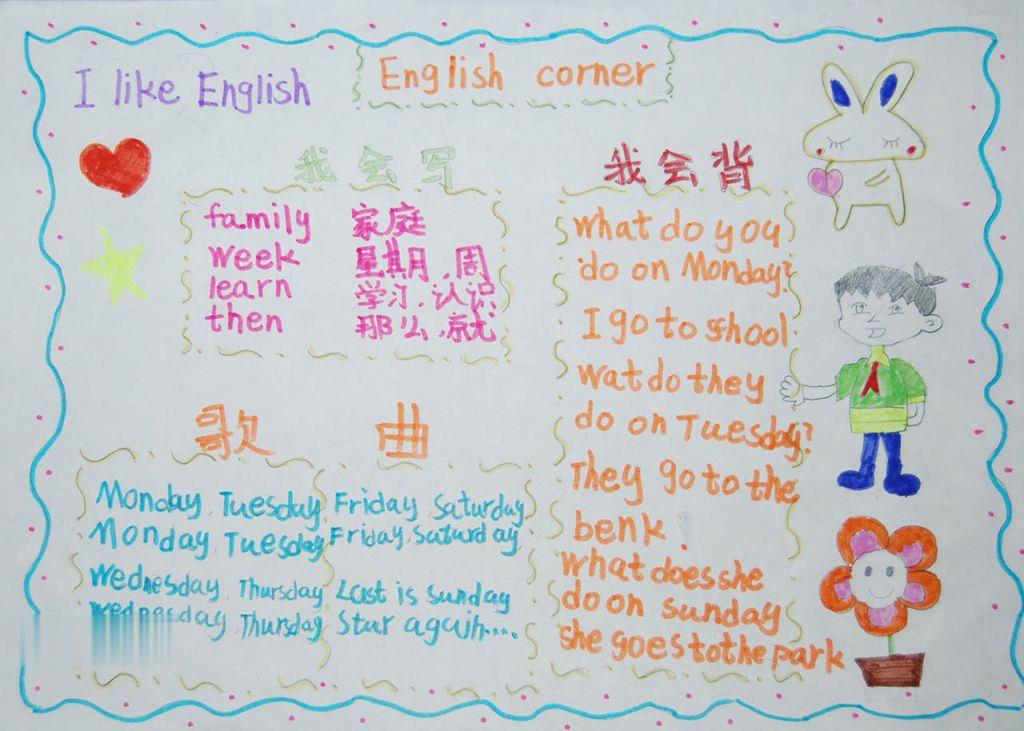 I like English
English corner
我会写
family 家庭
week 星期月,周
learn 学习,认识
then 那么,就
我会背
what do you
do on Monday?
I go to shool
wat do they
do on Tuesday?
They go to the
benk.
what does she
do on sunday
she goes to the park
歌 曲
Monday, Tuesday Friday Saturday
Monday Tuesday Friday, Saturday
Wednesday, Thursday Last is sunday
wednesday, Thursday Star again....